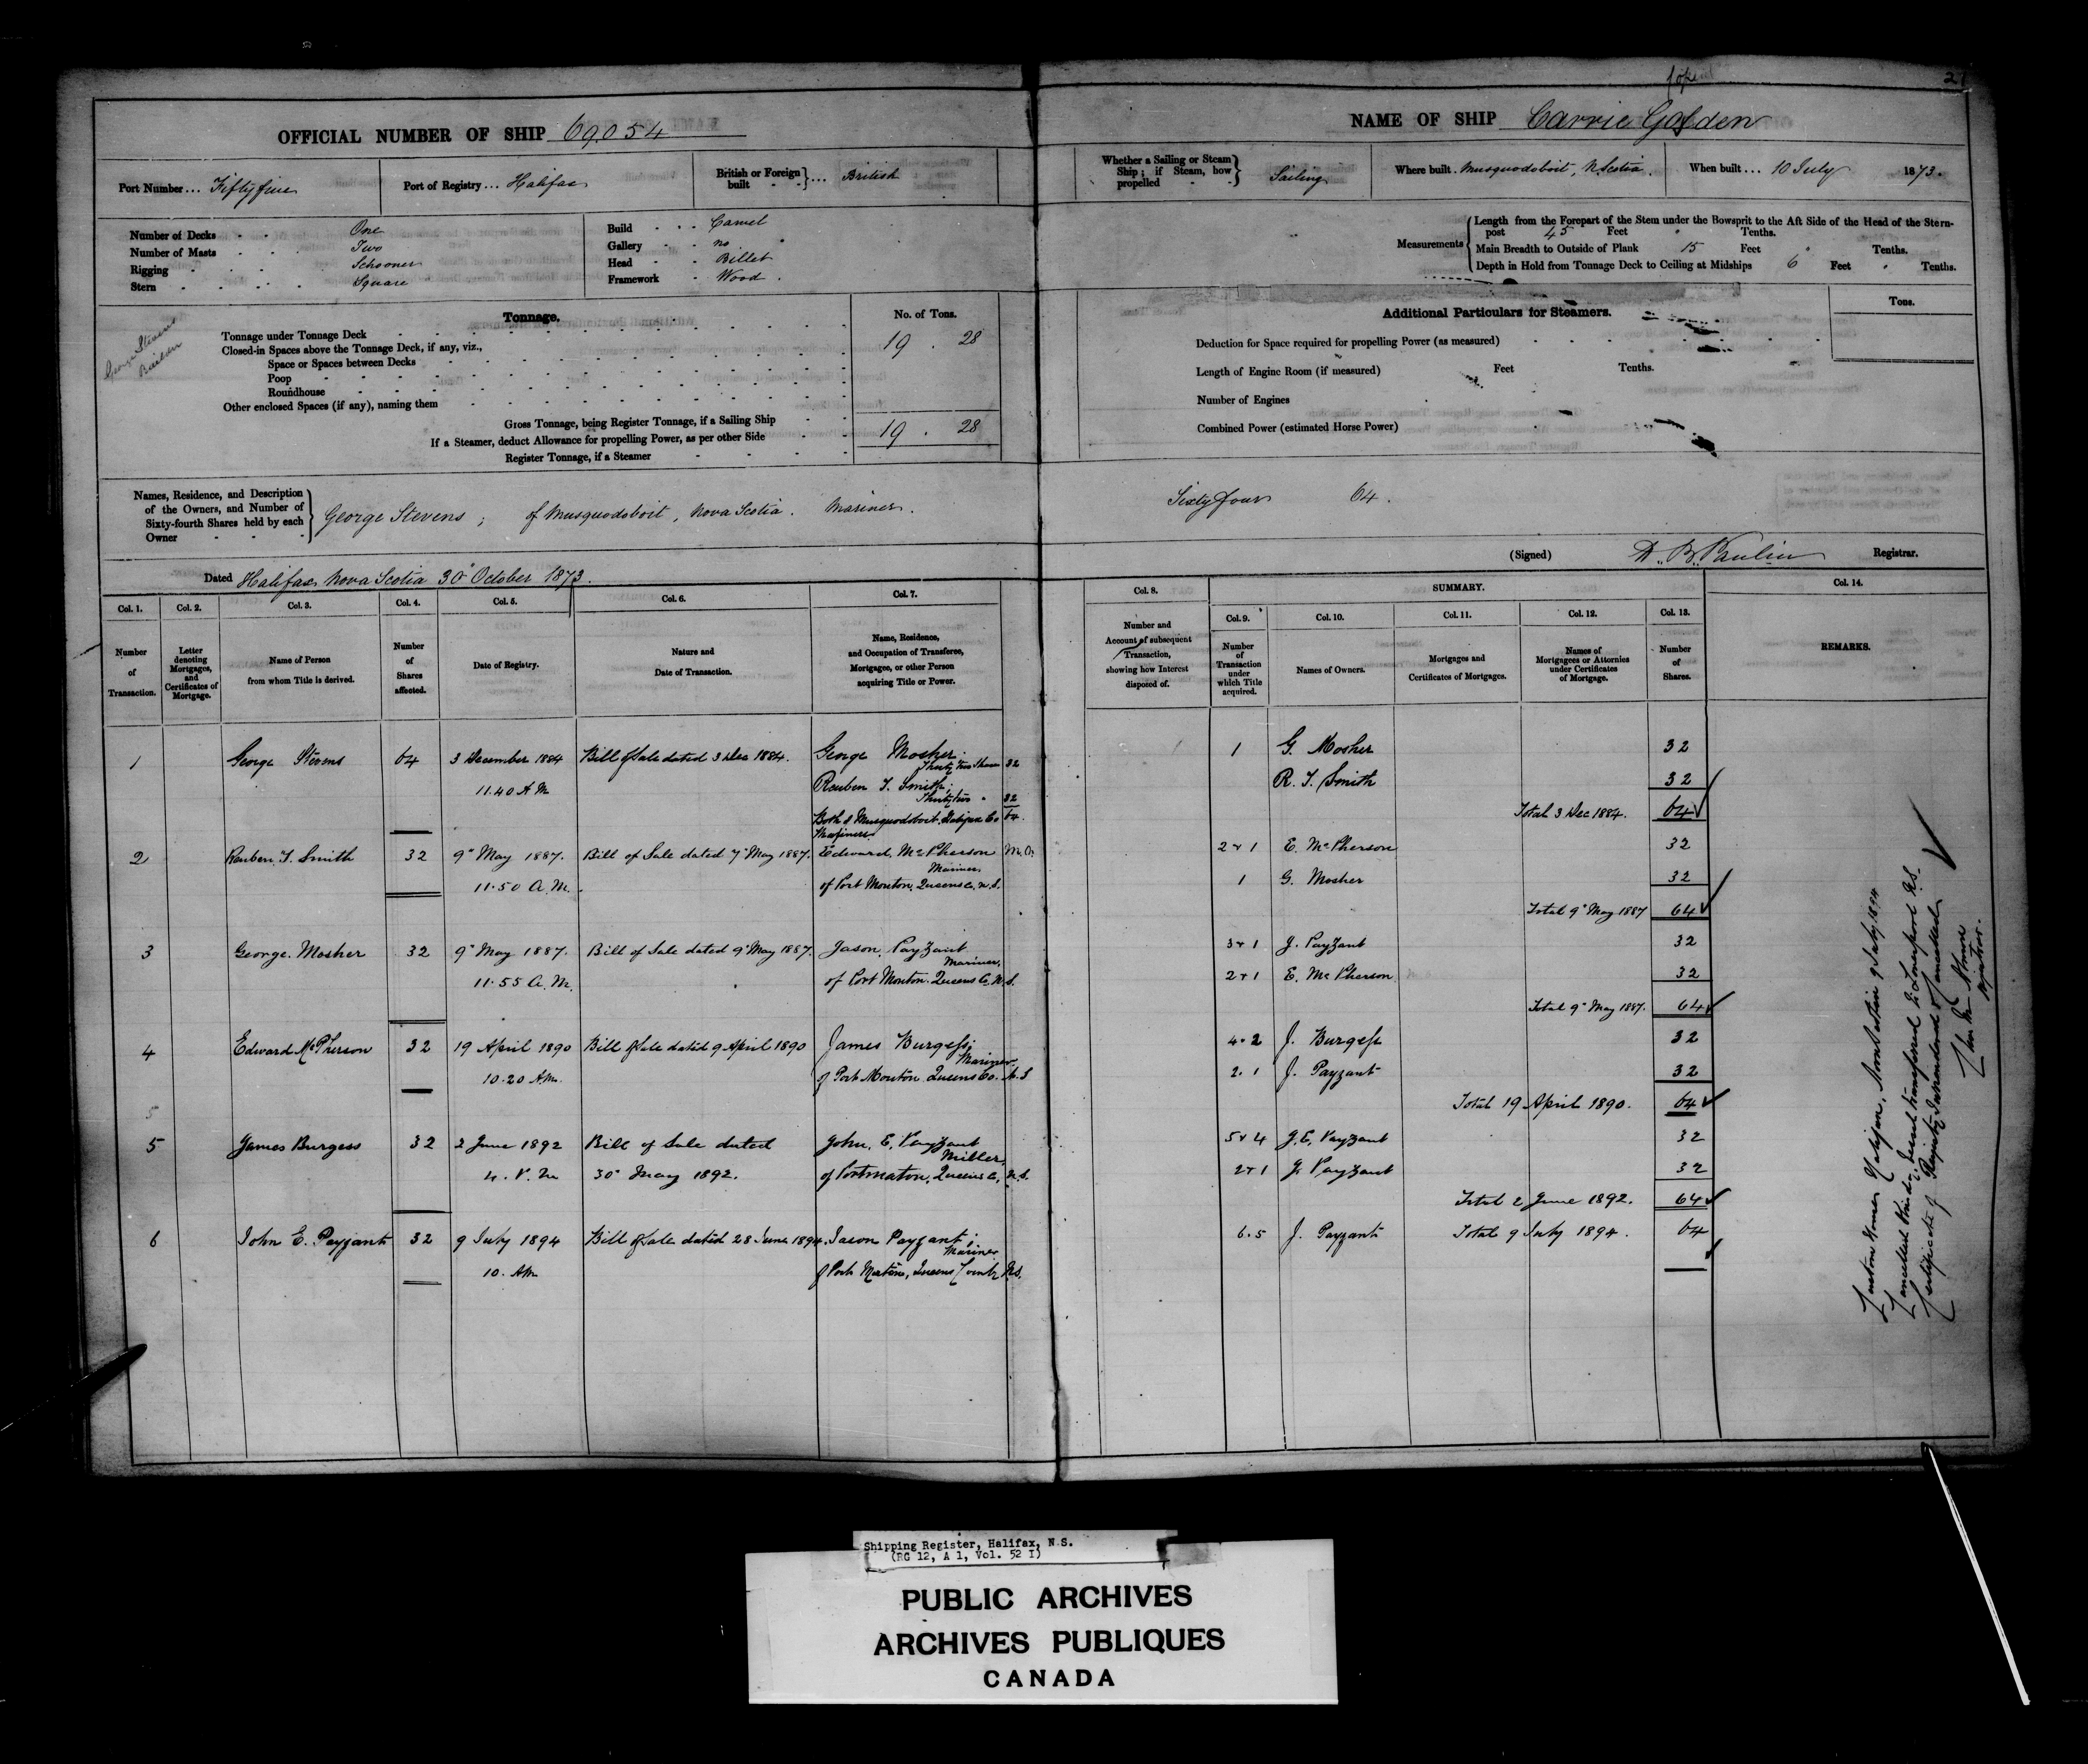 OFFICIAL NUMBER OF SHIP 69.054
Port Number ... Fifty five
Port of Registry ... Halifax
British or Foreign built ... British
Number of Decks One
Number of Masts Two
Rigging Schooner
Stern Square
Build Carvel
Gallery no
Head Billet
Framework Wood.
George Stevens
Builder
Tonnage.
No. of Tons.
Tonnage under Tonnage Deck 19 . 28
Closed-in Spaces above the Tonnage Deck, if any, viz.,
Space or Spaces between Decks
Poop
Roundhouse
Other enclosed Spaces (if any), naming them
Gross Tonnage, being Register Tonnage, if a Sailing Ship 19 . 28
If a Steamer, deduct Allowance for propelling Power, as per other Side
Register Tonnage, if a Steamer
Names, Residence, and Description
of the Owners, and Number of
Sixty-fourth Shares held by each
Owner
George Stevens ; of Musquodoboit, Nova Scotia. Mariner.
Dated Halifax Nova Scotia 30" October 1873.
Col. 1. Col. 2. Col. 3. Col. 4. Col. 5. Col. 6. Col. 7.
Number of Transaction.
Letter denoting Mortgages, and Certificates of Mortgage.
Name of Person from whom Title is derived.
Number of Shares affected.
Date of Registry.
Nature and Date of Transaction.
Name, Residence, and Occupation of Transferee, Mortgagee, or other Person acquiring Title or Power.
1 George Stevens 64 3 December 1884 Bill of Sale dated 3 Dec 1884. George Mosher
Thirty two Shares 32
11.40 A M Reuben T. Smith,
Thirty two " 32
Both of Musquodoboit, Halifax Co 64.
Mariners
2 Reuben T. Smith 32 9" May 1887. Bill of Sale dated 7" May 1887. Edward McPherson
Mariner.
11.50 A.M. of Port Mouton, Queens Co, N.S.
3 George Mosher 32 9" May 1887. Bill of Sale dated 9" May 1887. Jason Payzant
Mariner,
11.55 A.M. of Port Mouton. Queens Co. N.S.
4 Edward McPherson 32 19 April 1890 Bill of Sale dated 9 April 1890 James Burgess;
Mariner
10.20 A.M. of Port Mouton Queens Co. N.S
5
5 James Burgess 32 2 June 1892 Bill of Sale dated John. E. Payzant
Miller,
4. P. M 30" May 1892. of Portmaton, Queens Co, N.S.
6 John E. Payzant 32 9 July 1894 Bill of Sale dated 28 June 1894. Jason Payzant;
Mariner
10. AM of Port Matoon, Queens County N.S.
2
NAME OF SHIP Carrie Golden
Whether a Sailing or Steam Ship; if Steam, how propelled Sailing
Where built. Musquodoboit, N. Scotia.
When built ... 10 July 1873.
Measurements
Length from the Forepart of the Stem under the Bowsprit to the Aft Side of the Head of the Stern-
post 45 Feet " Tenths.
Main Breadth to Outside of Plank 15 Feet " Tenths.
Depth in Hold from Tonnage Deck to Ceiling at Midships 6 Feet " Tenths.
Additional Particulars for Steamers.
Tons.
Deduction for Space required for propelling Power (as measured)
Length of Engine Room (if measured) Feet Tenths.
Number of Engines
Combined Power (estimated Horse Power)
Sixty four 64.
(Signed) Registrar.
Col. 8. SUMMARY. Col. 14.
Col. 9. Col. 10. Col. 11. Col. 12. Col. 13.
Number and Account of subsequent Transaction, showing how Interest disposed of.
Number of Transaction under which Title acquired.
Names of Owners.
Mortgages and Certificates of Mortgages.
Names of Mortgagees or Attornies under Certificates of Mortgage.
Number of Shares.
REMARKS.
1 G. Mosher 32
R. T. Smith 32
Total 3 Dec 1884. 64
2 + 1 E. McPherson 32
1 G. Mosher 32
Total 9" May 1887 64
3 + 1 J. Payzant 32
2 + 1 E. McPherson 32
Total 9" May 1887. 64
4. 2 J. Burgess 32
2. 1 J. Payzant 32
Total 19 April 1890. 64
5 + 4 J. E. Payzant 32
2 + 1 J. Payzant 32
Total 2 June 1892. 64
6. 5 J. Payzant Total 9 July 1894. 64
Custom House Halifax, 9 July 1894
transferred to Liverpool N.S.
Certificate of Registry Surrendered & Cancelled
Registrar.
Shipping Register, Halifax, N.S.
(RG 12, A 1, Vol. 52 I)
PUBLIC ARCHIVES
ARCHIVES PUBLIQUES
CANADA